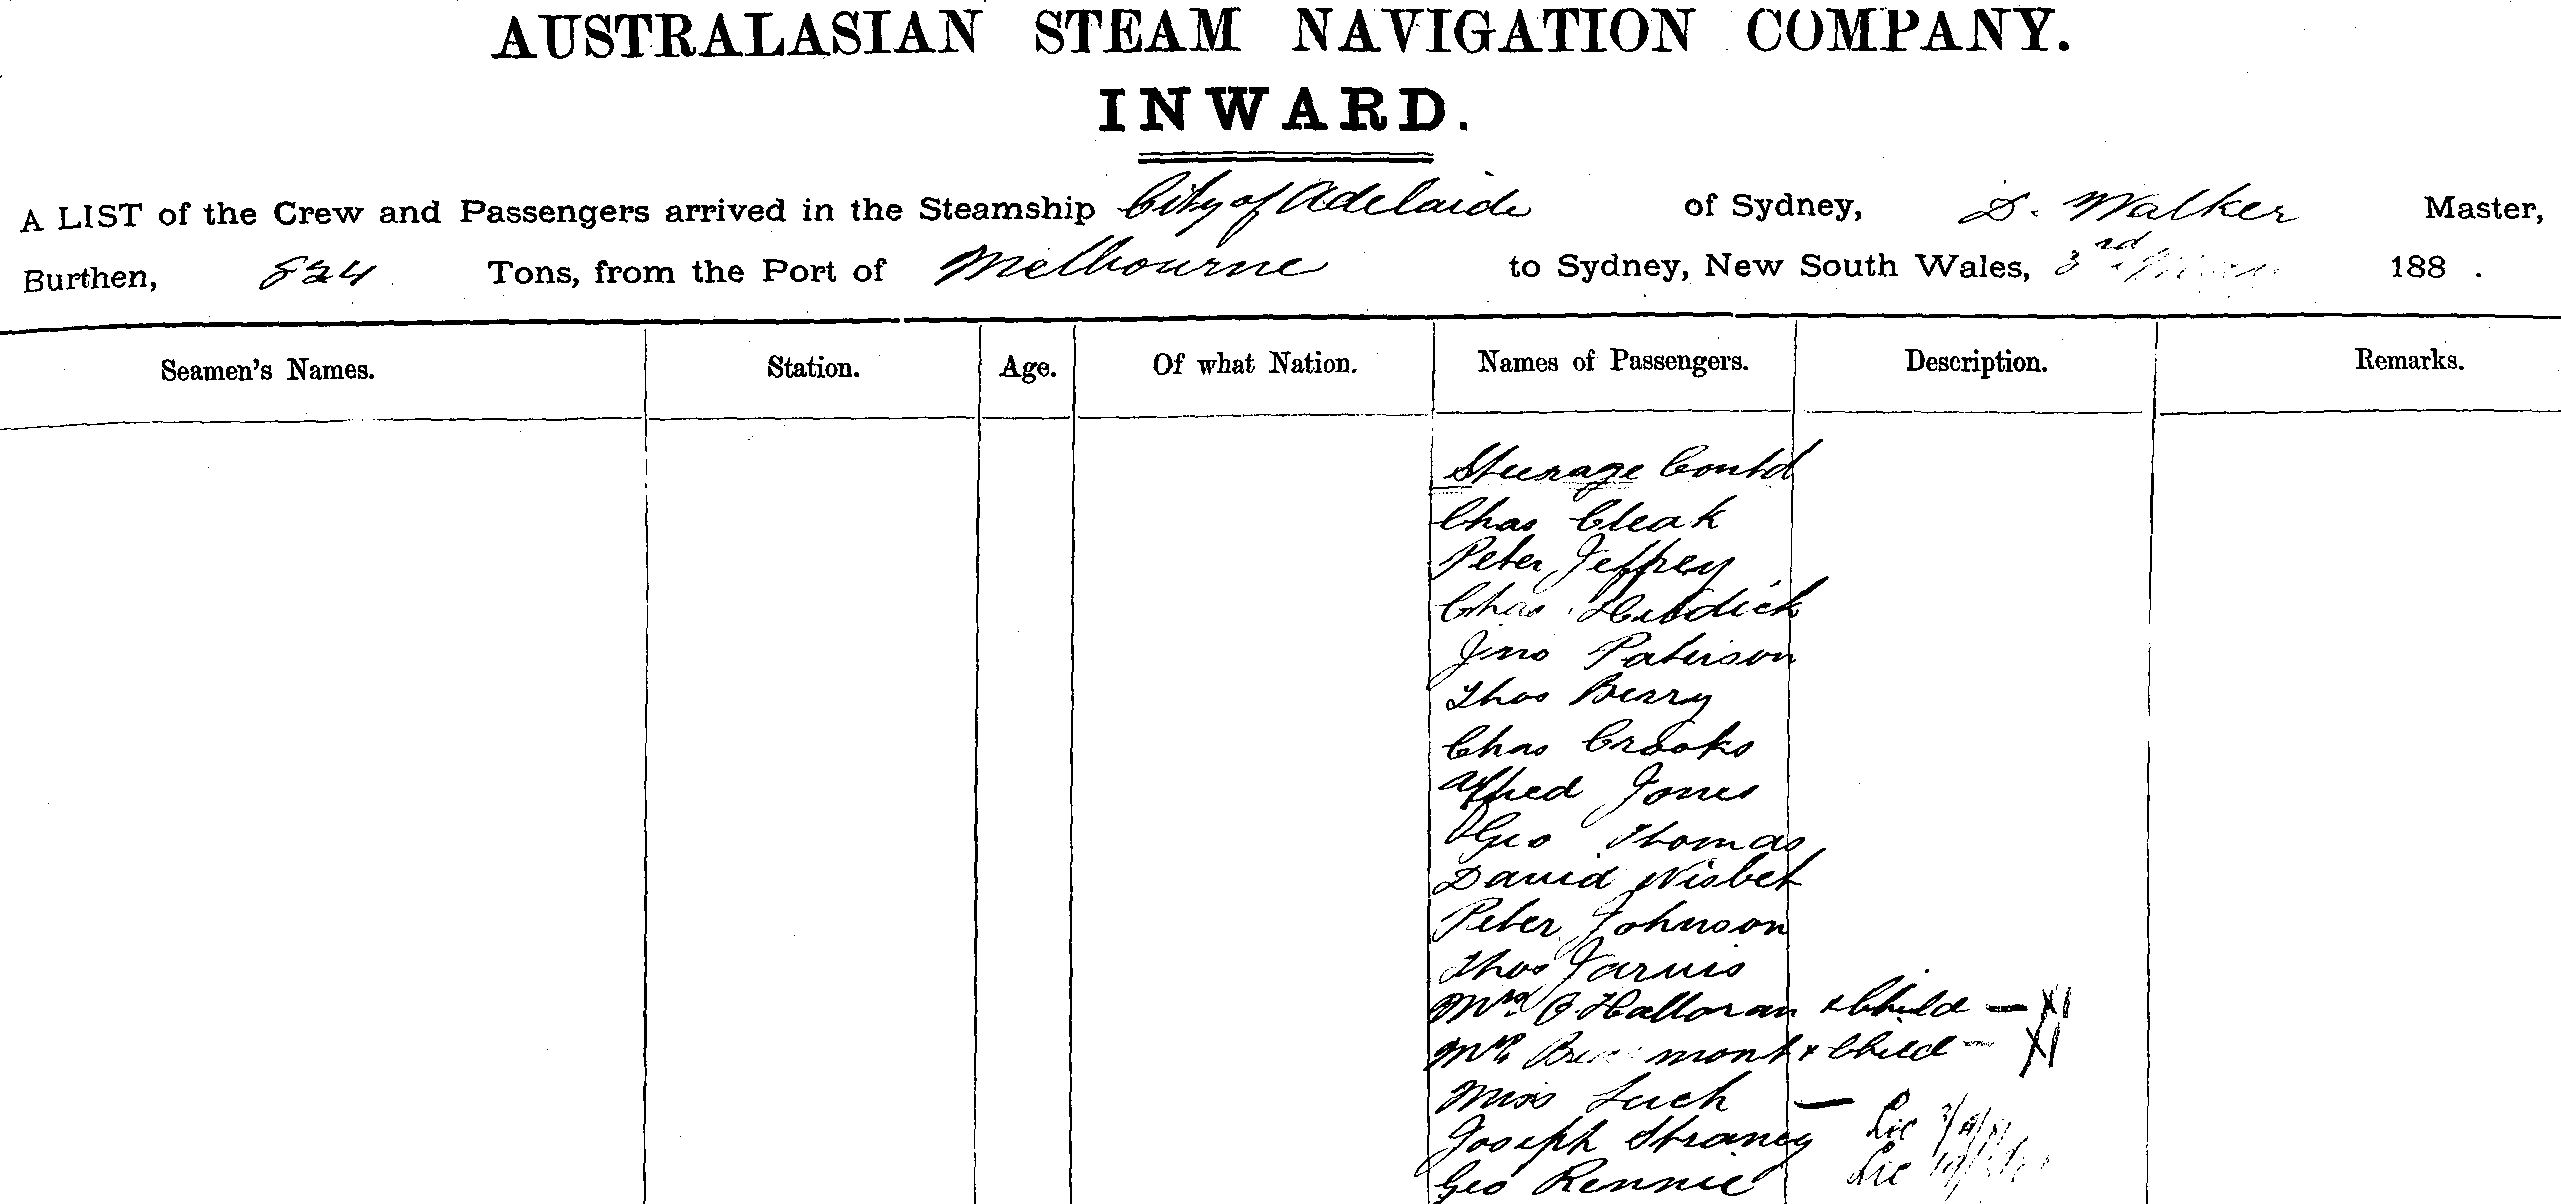 AUSTRALASIAN STEAM NAVIGATION COMPANY.
INWARD.
A LIST of the Crew and Passengers arrived in the Steamship City of Adelaide of Sydney, D. Walker Master,
Burthen, 824 Tons, from the Port of Melbourne to Sydney, New South Wales, 3rd 188 .
Seamen's Names. Station. Age. Of what Nation. Names of Passengers. Description. Remarks.
Steerage Contd
Chas Cleak
Peter Jeffrey
Chas
Jno Paterson
Thos Berry
Chas Crooks
Alfred Jones
Geo Thomas
David Nisbet
Peter Johnson
Thos Jarvis
Mrs O'Halloran & Child —
& Child —
Miss —
Joseph Straney
Geo Rennie